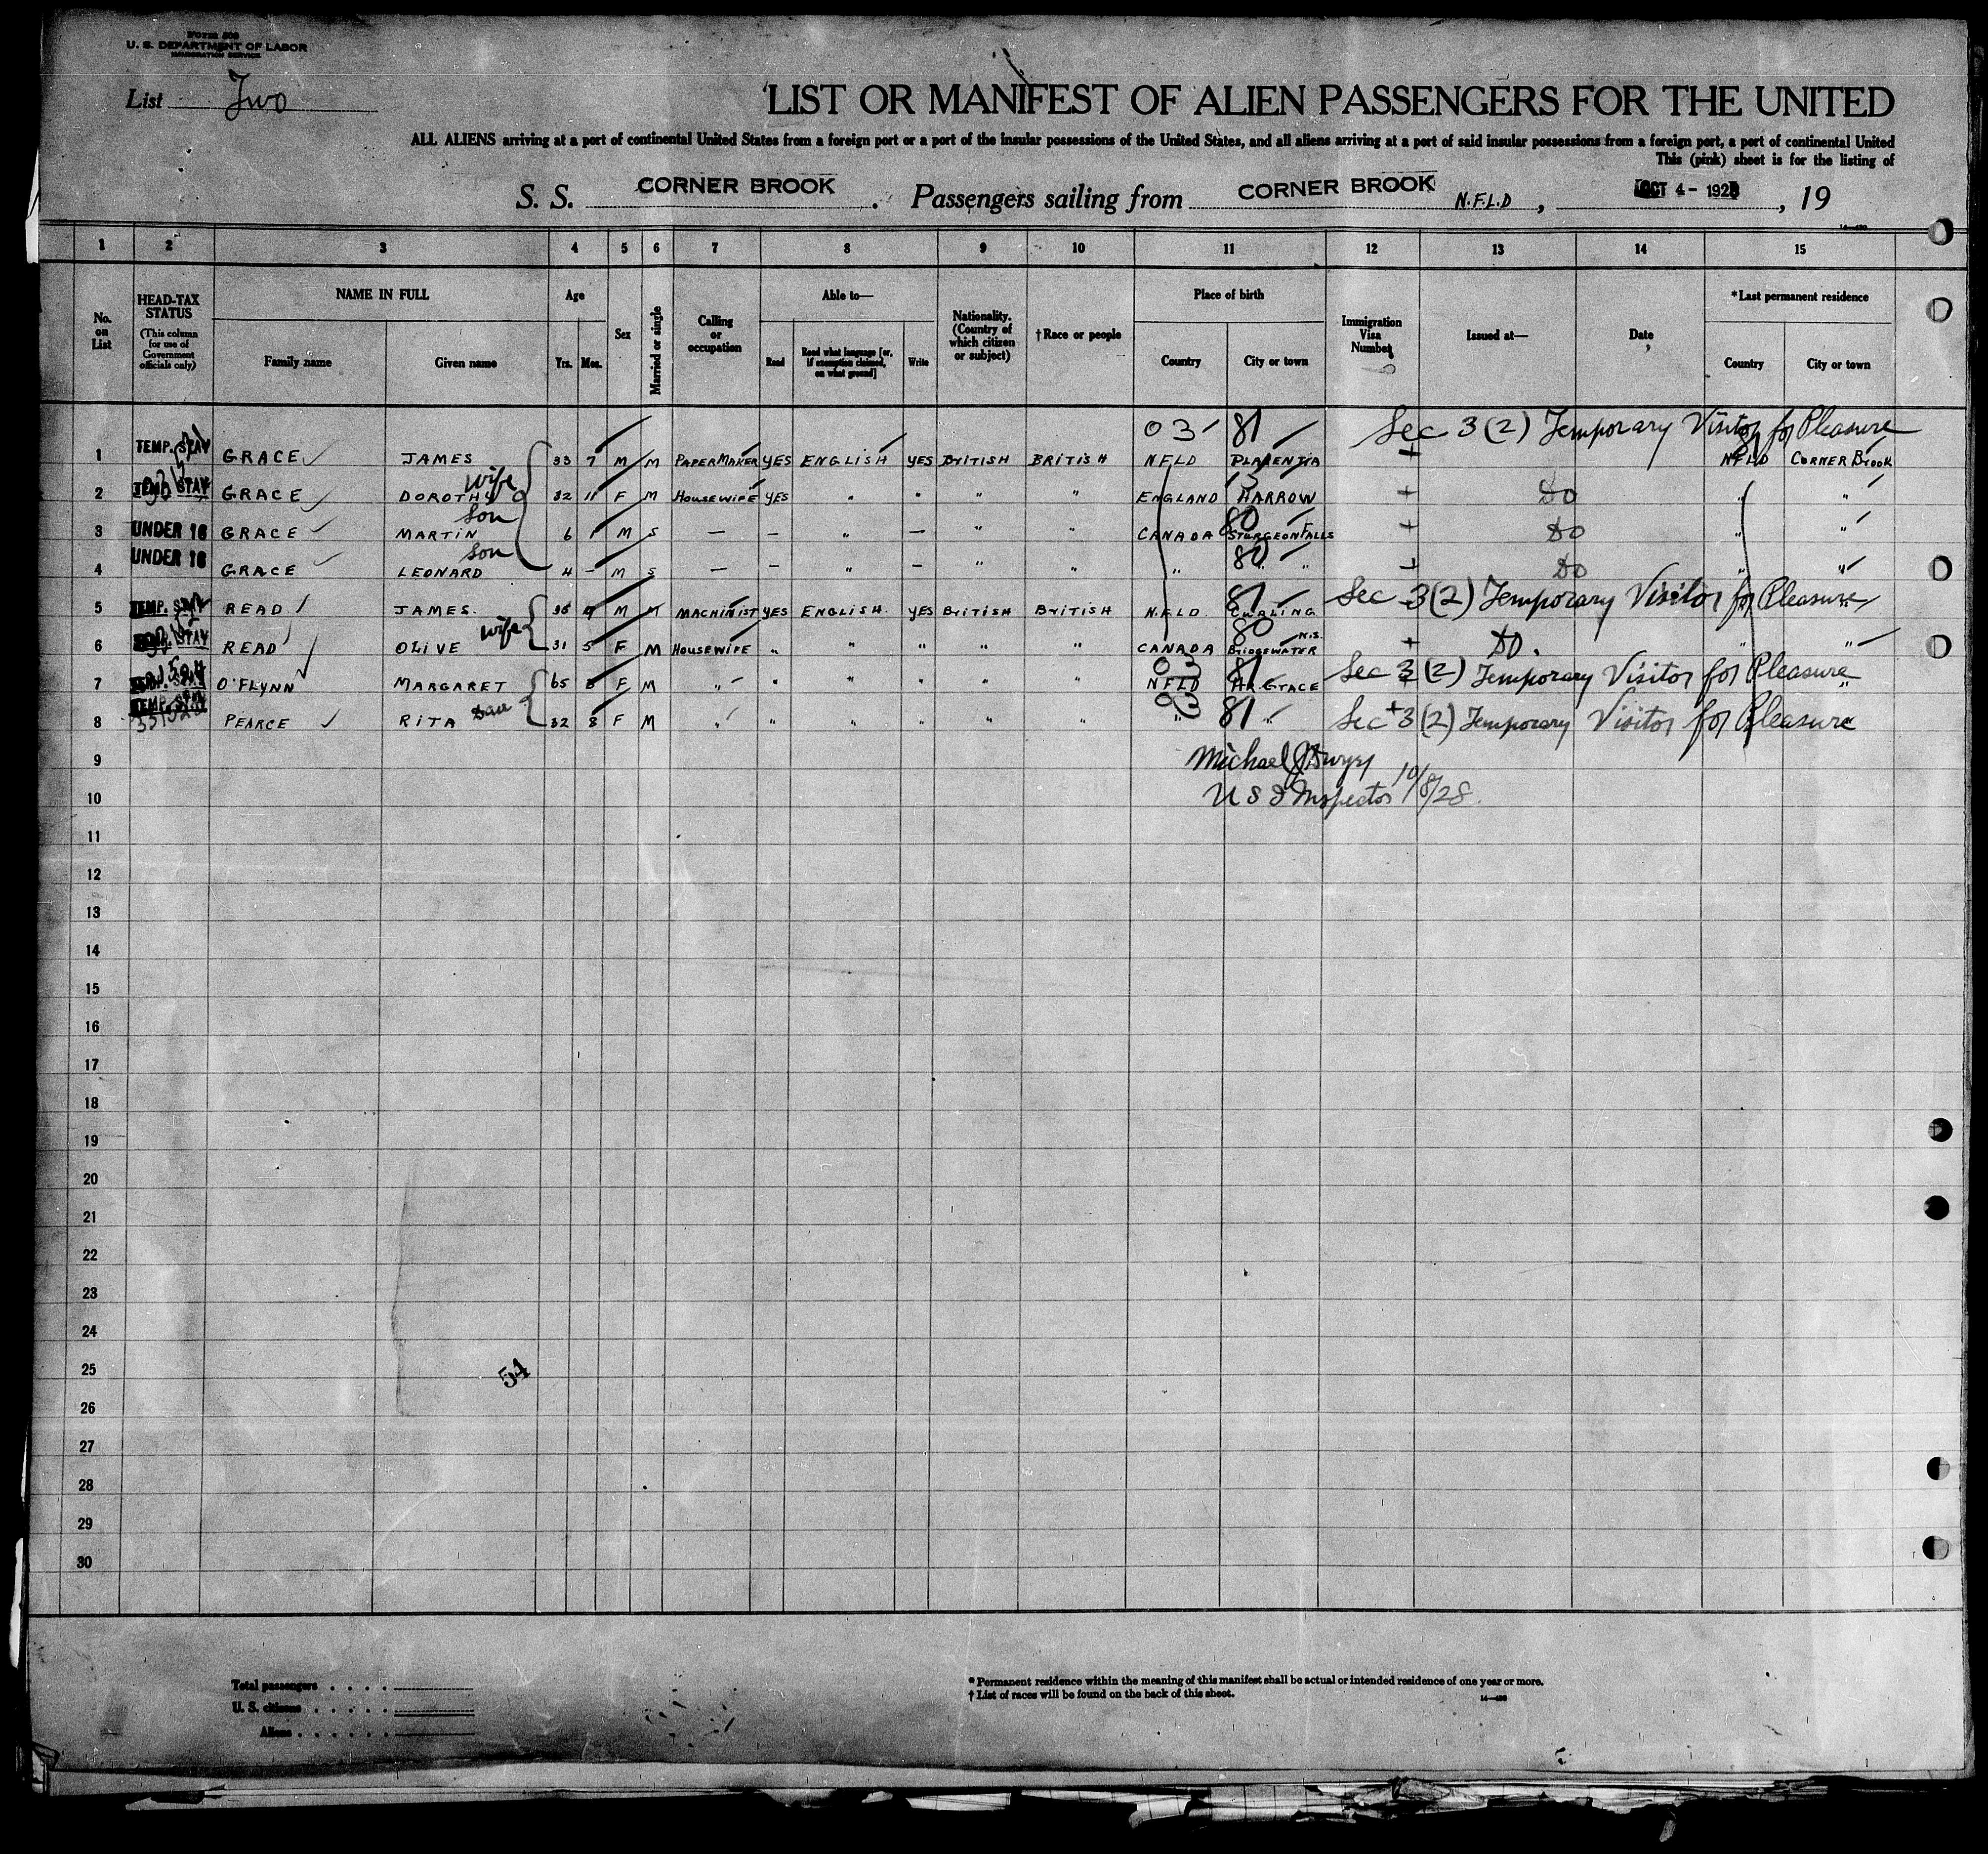 Form 500
U. S. DEPARTMENT OF LABOR
IMMIGRATION SERVICE
List Two
LIST OR MANIFEST OF ALIEN PASSENGERS FOR THE UNITED
ALL ALIENS arriving at a port of continental United States from a foreign port or a port of the insular possessions of the United States, and all aliens arriving at a port of said insular possessions from a foreign port, a port of continental United
This (pink) sheet is for the listing of
S. S. CORNER BROOK. Passengers sailing from CORNER BROOK N.F.L.D, OCT 4 - 1928, 19
1 2 3 4 5 6 7 8 9 10 11 12 13 14 15
No. on List
HEAD-TAX STATUS (This column for use of Government officials only)
NAME IN FULL
Family name Given name
Age
Yrs. Mos.
Sex
Married or single
Calling or occupation
Able to—
Read Read what language [or, if exemption claimed, on what ground] Write
Nationality. (Country of which citizen or subject)
†Race or people
Place of birth
Country City or town
Immigration Visa Number
Issued at—
Date
*Last permanent residence
Country City or town
03 81 Sec 3 (2) Temporary Visitor for Pleasure
1 TEMP. STAY GRACE JAMES 33 7 M M PAPERMAKER YES ENGLISH YES BRITISH BRITISH NFLD PLACENTIA NFLD CORNER BROOK
2 TEMP. STAY GRACE DOROTHY wife 32 11 F M HOUSEWIFE YES " " " " ENGLAND HARROW + DO " "
3 UNDER 16 GRACE MARTIN son 6 1 M S — — " — " " CANADA 80 STURGEON FALLS + DO " "
4 UNDER 16 GRACE LEONARD son 4 – M S — — " — " " " 80 " DO " "
5 TEMP. STAY READ JAMES. M M MACHINIST YES ENGLISH. YES BRITISH BRITISH N.F.L.D. 81 CURLING Sec 3 (2) Temporary Visitor for Pleasure
6 STAY READ OLIVE wife 31 5 F M HOUSEWIFE " " " " " CANADA 80 BRIDGEWATER N.S. + DO. " "
7 O'FLYNN MARGARET 65 F M " " " " " " 03 NFLD 81 HR. GRACE Sec 3 (2) Temporary Visitor for Pleasure
8 TEMP. STAY PEARCE RITA Dau 32 8 F M " " " " " " 03 " 81 " Sec 3 (2) Temporary Visitor for Pleasure
9 Michael J Dwyer
10 U S I Inspector 10/8/28.
11
12
13
14
15
16
17
18
19
20
21
22
23
24
25 54
26
27
28
29
30
Total passengers
U. S. citizens
Aliens
* Permanent residence within the meaning of this manifest shall be actual or intended residence of one year or more.
† List of races will be found on the back of this sheet.